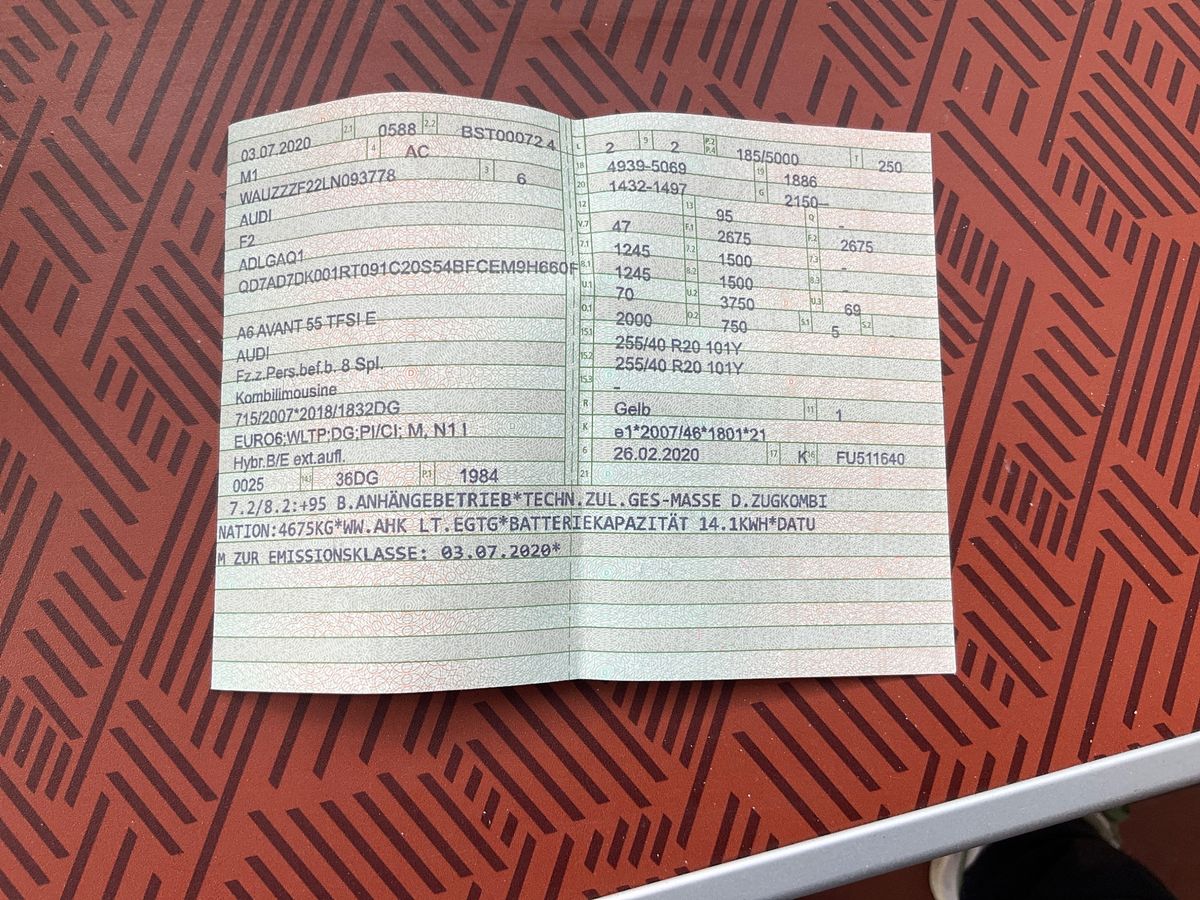 03.07.2020 2.1 0588 2.2 BST00072 4
M1 4 AC
WAUZZZF22LN093778 3 6
AUDI
F2
ADLGAQ1
QD7AD7DK001RT091C20S54BFCEM9H660F
A6 AVANT 55 TFSI E
AUDI
Fz.z.Pers.bef.b. 8 Spl.
Kombilimousine
715/2007*2018/1832DG
EURO6;WLTP;DG;PI/CI; M, N1 I
Hybr.B/E ext.aufl.
0025 14.1 36DG P.1 1984
L 2 9 2 P.2 P.4 185/5000 T 250
18 4939-5069 19 1886
20 1432-1497 G 2150--
12 13 95 Q -
V.7 47 F.1 2675 F.2 2675
7.1 1245 7.2 1500 7.3 -
8.1 1245 8.2 1500 8.3 -
U.1 70 U.2 3750 U.3 69
O.1 2000 O.2 750 S.1 5 S.2
15.1 255/40 R20 101Y
15.2 255/40 R20 101Y
15.3 -
R Gelb 11 1
K e1*2007/46*1801*21
6 26.02.2020 17 K 16 FU511640
21
7.2/8.2:+95 B.ANHÄNGEBETRIEB*TECHN.ZUL.GES-MASSE D.ZUGKOMBI
NATION:4675KG*WW.AHK LT.EGTG*BATTERIEKAPAZITÄT 14.1KWH*DATU
M ZUR EMISSIONSKLASSE: 03.07.2020*